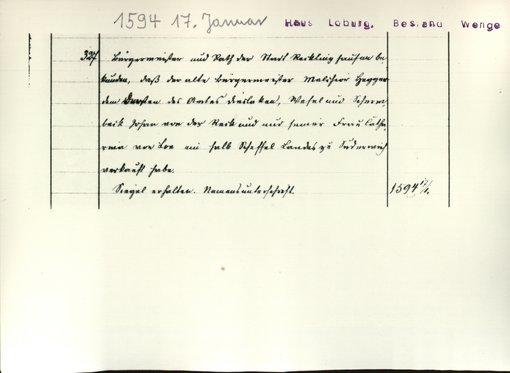 1594 17. Januar Haus Loburg, Bestand Wenge
327 Bürgermeister und Rath der Stadt Recklinghausen be
kunden, daß der alte Bürgermeister Melchior Hegger
dem Drosten des Amtes Dinslaken, Wesel und Scherm
beck Johan von der Reck und nur seiner Frau Catha
rina von Loe ein halb Scheffel Landes zu Suderwich
verkauft habe.
Siegel erhalten. Namensunterschrift. 1594 17/1.